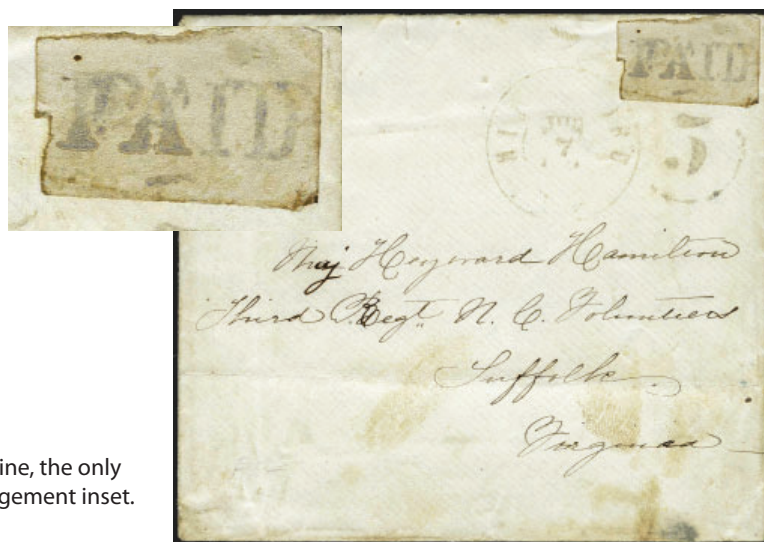 PAID
PAID
5
7
Maj Heyward Hamilton
Third Regt. N. C. Volunteers
Suffolk
Virginia
ine, the only
gement inset.